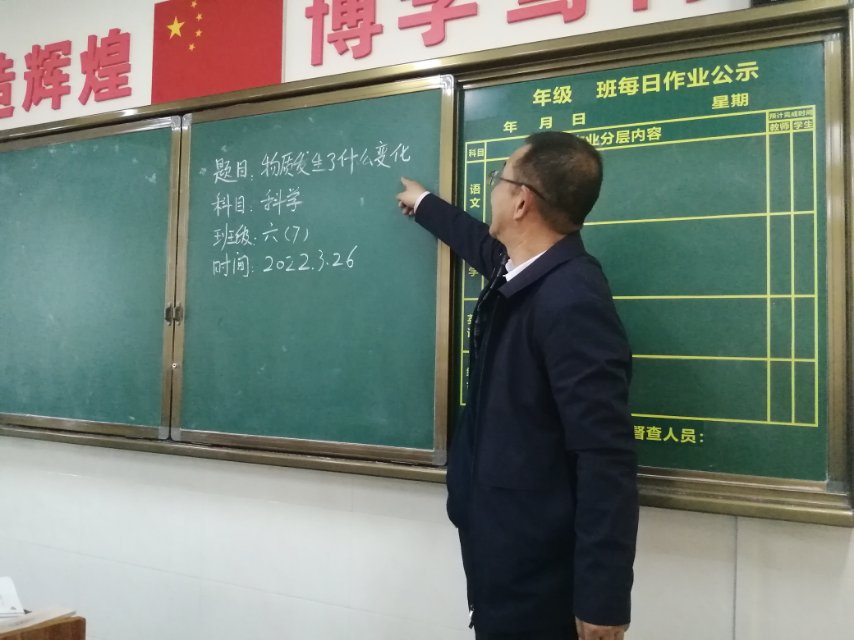 辉煌
博学
题目:物质发生了什么变化
科目:科学
班级:六(7)
时间:2022.3.26
年级 班每日作业公示
年 月 日 星期
科目 业分层内容 预计完成时间
教师 学生
语文
学
督查人员: